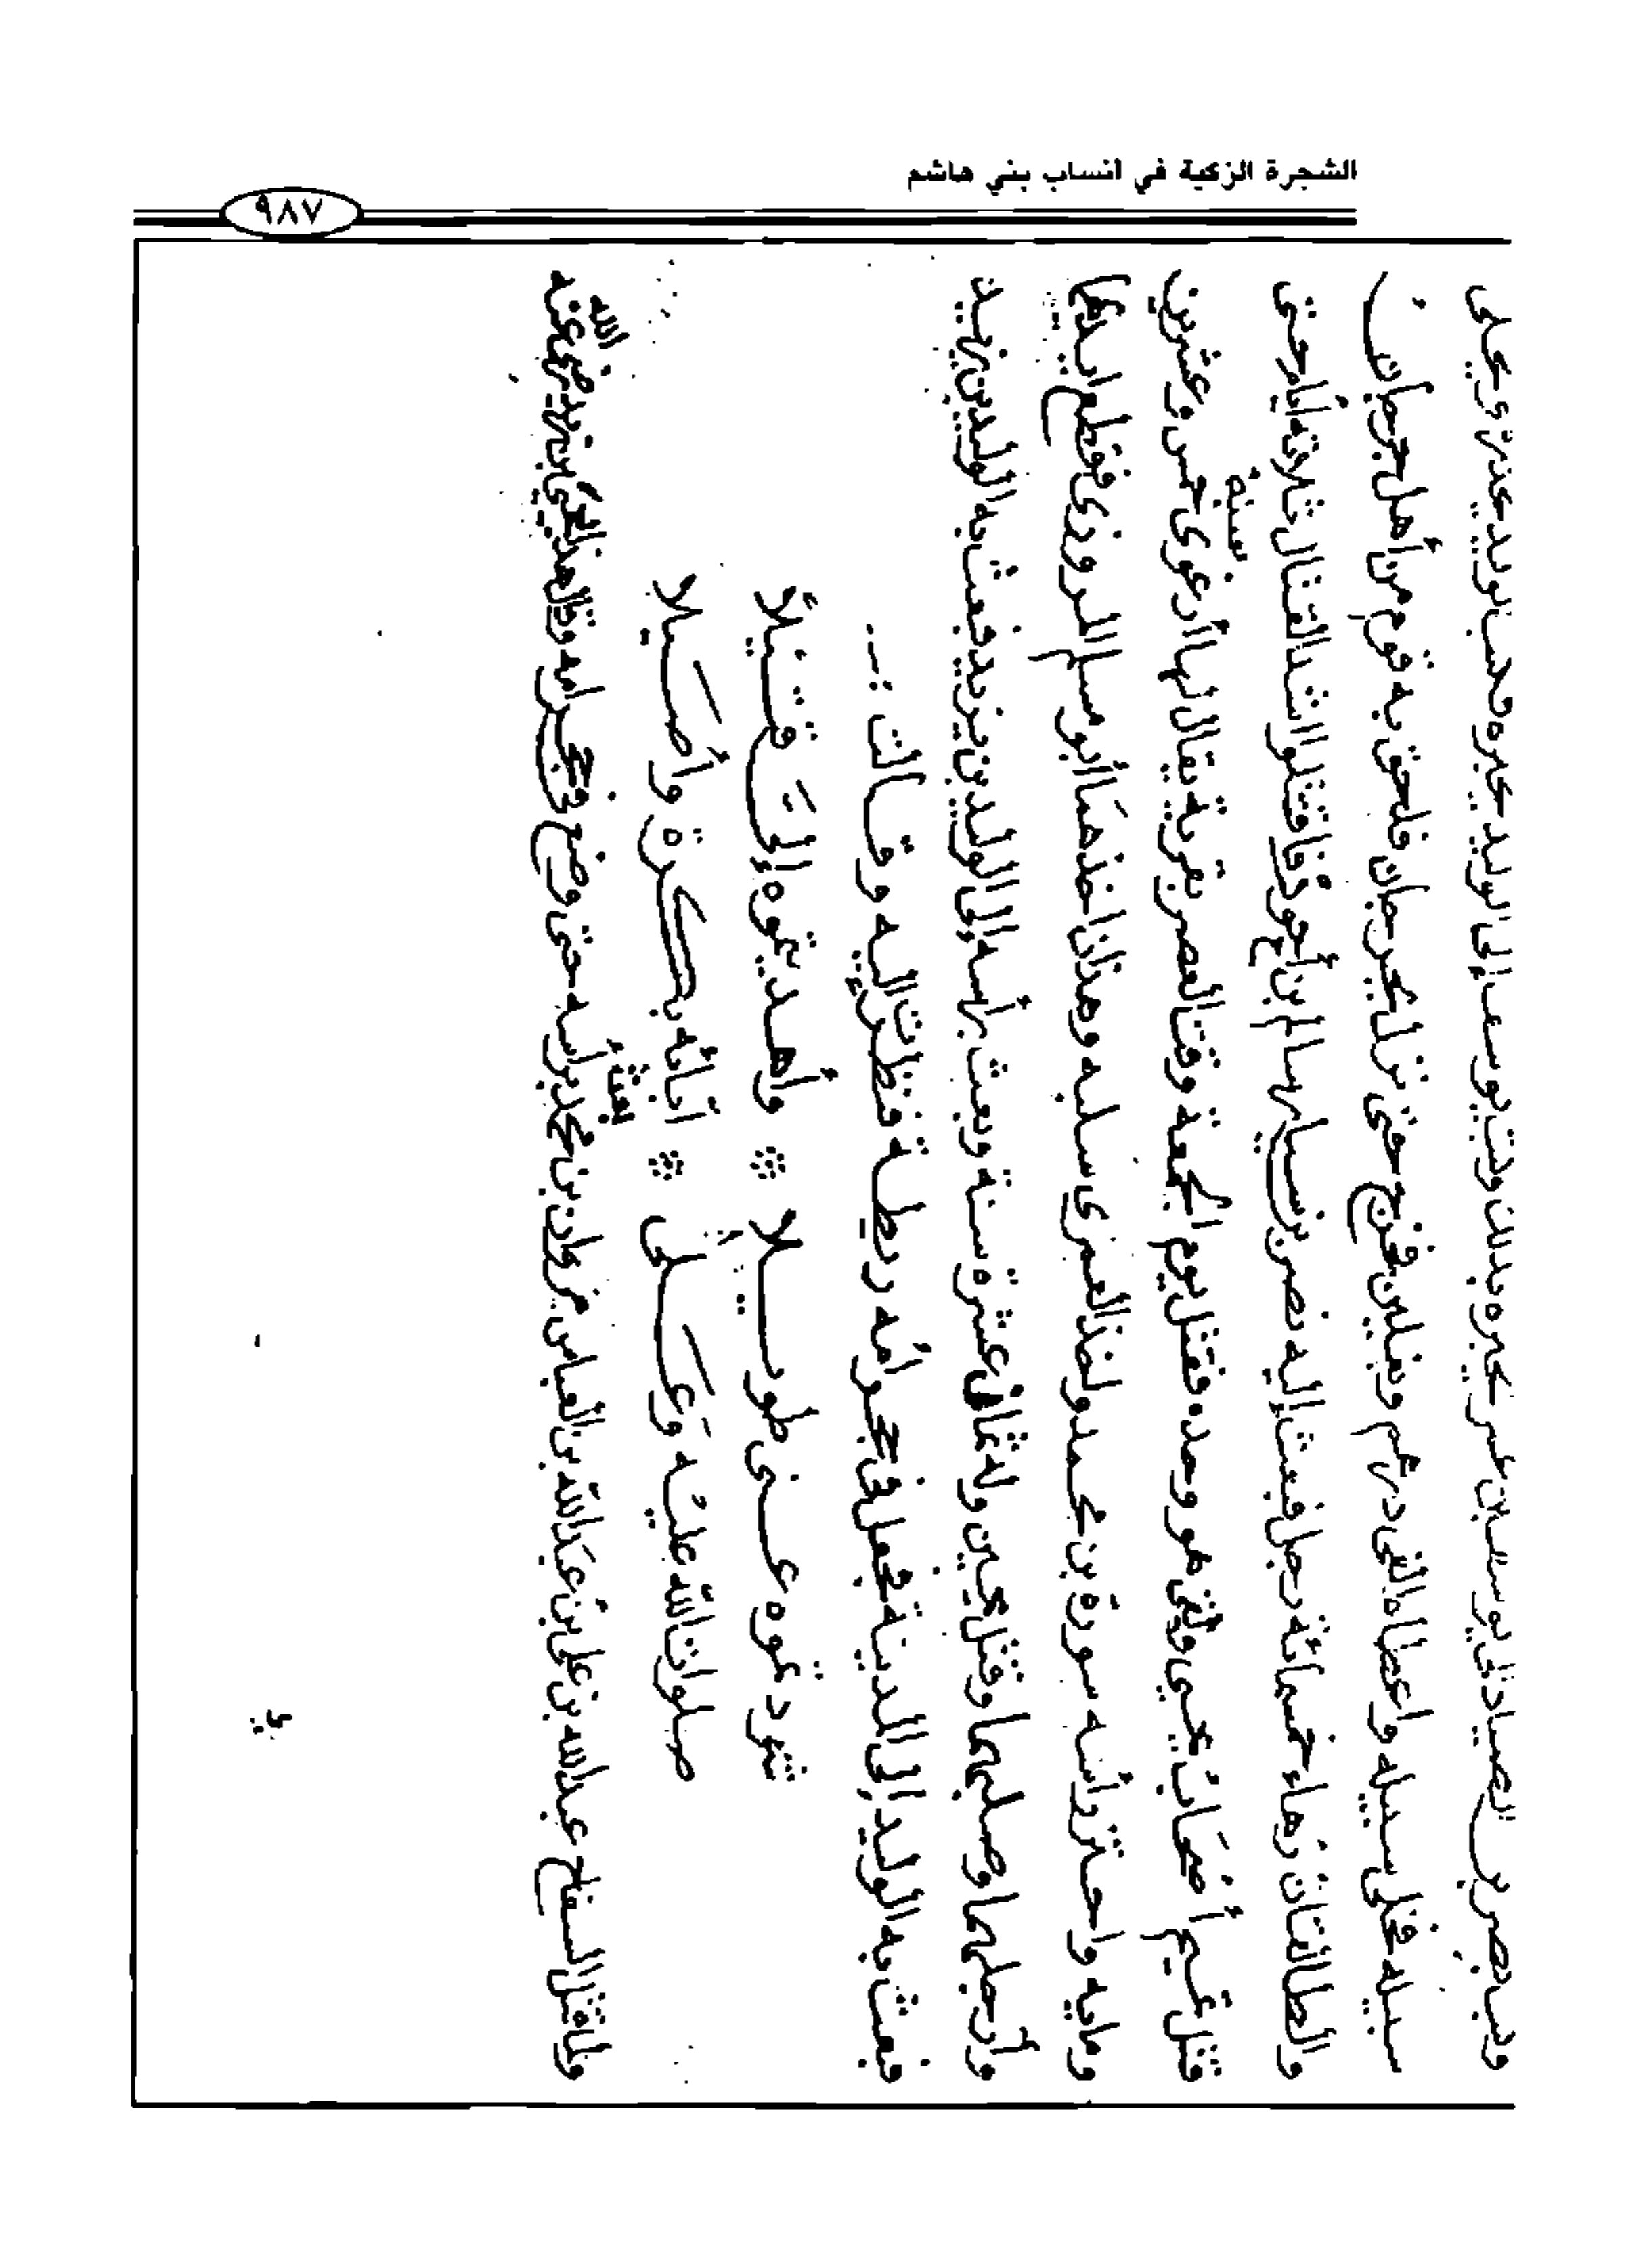 الشجرة الزكية في أنساب بني هاشم
٩٨٧
يوسف بن عمر يخبره بذلك وكتب يوسف إلى الوليد يخبره فكتب الوليد
سبيله فخلى سبيله وأعطاه ألفى درهم ونعلين فخرج حتى نزل بجرجان فلحق به قوم من أهل جرجان
والطالقان زهاء خمسمائة رجل فبعث إليه نصر بن سيار سالم بن أحوذ فاقتتلوا أشد القتال ثلاثة أيام حتى
قتل جميع أصحاب يحيى وبقى هو وحده فقتل يوم الجمعة وقت العصر بقرية يقال لها أرغوى سنة خمس وعشرين
ومايه واحتز رأسه سورة بن محمد وأخذ العنزى سلبه وهذان أخذهما أبو مسلم المروزى فقطع أيديهما
وأرجلهما وصلبهما وقتل يحيى وله ثمان عشرة سنة وبعث برأسه إلى الوليد بن يزيد فبعث به الوليد بن يزيد
فبعث به الوليد إلى المدينة فجعل فى حجر أمه ريطة فنظرت إليه وقالت :ـ
شردتموه عنى طويلا * وأهديتموه إلىّ قتيلاً
صلوات الله عليه وعلى * آبائه بكرة وأصيلا
ولما قتل السفاح عبدالله بن على بن عبدالله بن العباس مروان بن محمد بعث برأسه حتى وضع فى حجر أمه وقال هذا بيحيى بن زيد رضى الله عنه